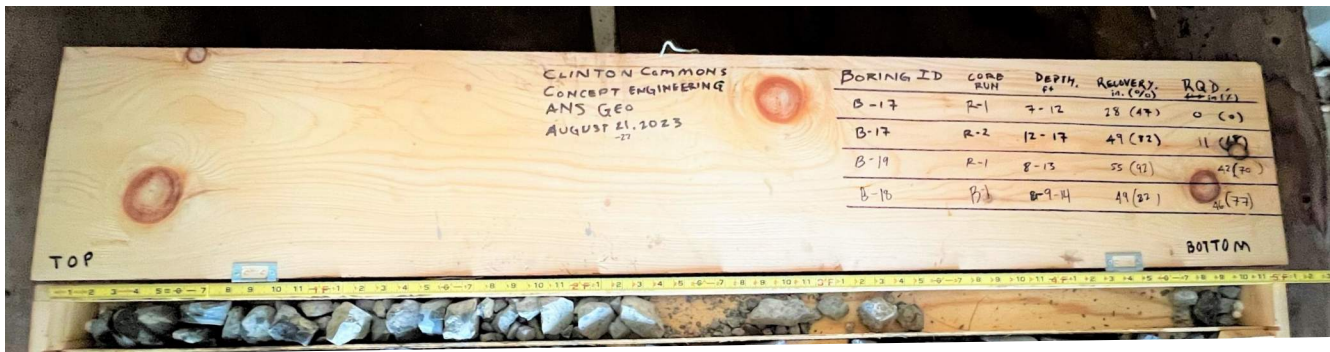 CLINTON COMMONS
CONCEPT ENGINEERING
ANS GEO
AUGUST 21, 2023
-22
BORING ID CORE RUN DEPTH, ft RECOVERY, in. (%) RQD, in (%)
B-17 R-1 7-12 28 (47) 0 (0)
B-17 R-2 12-17 49 (82) 11
B-19 R-1 8-13 55 (92) 42 (70)
B-18 R-1 9-14 49 (82) 46 (77)
TOP
BOTTOM